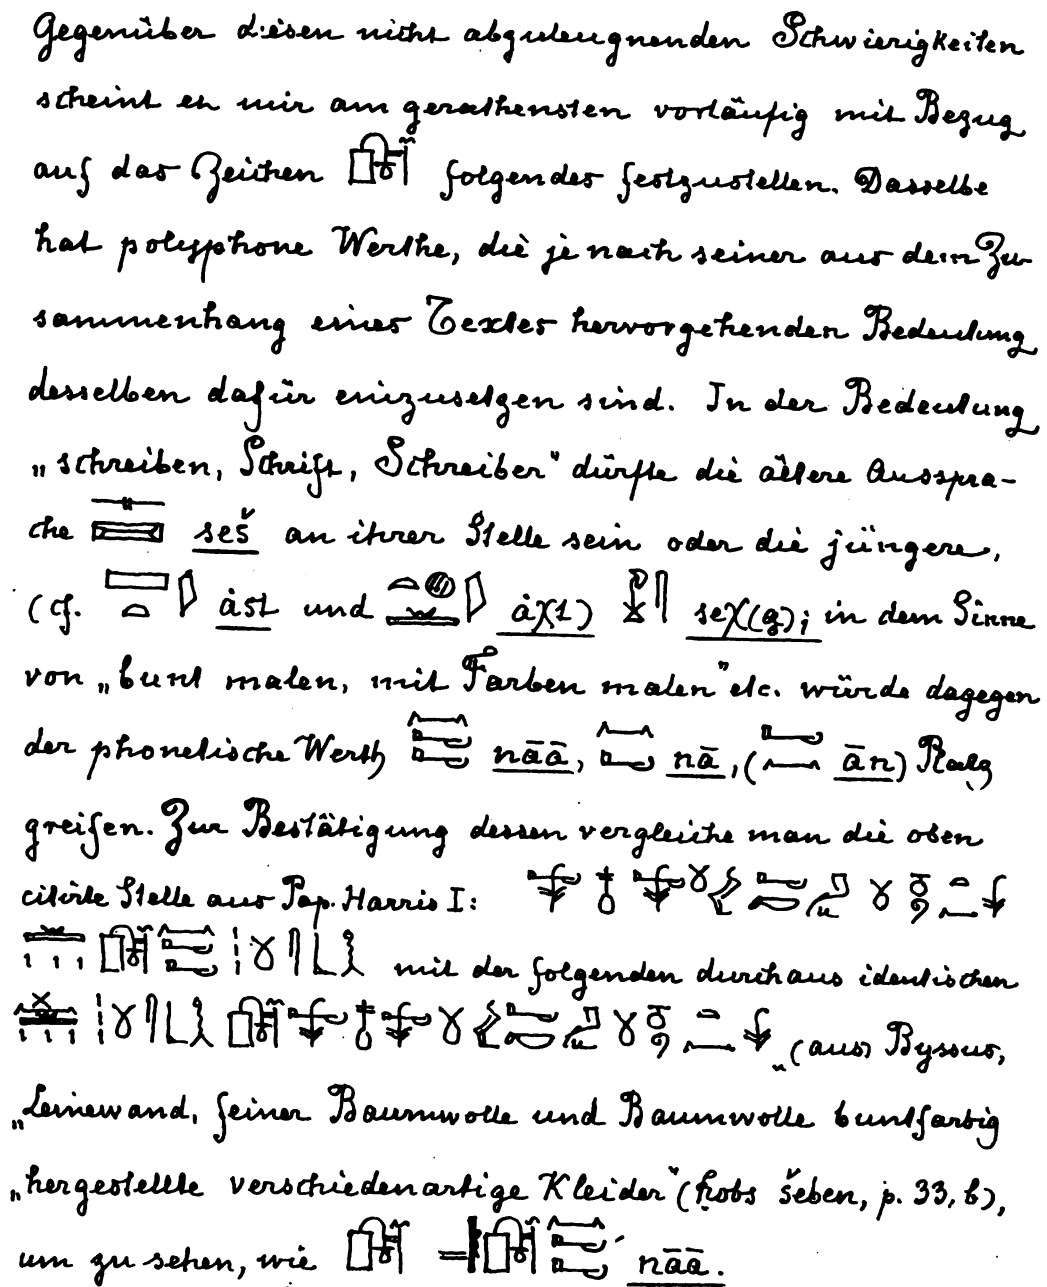 Gegenüber diesen nicht abzuleugnenden Schwierigkeiten
scheint es mir am gerathensten vorläufig mit Bezug
auf das Zeichen 𓏞 folgendes festzustellen. Dasselbe
hat polyphone Werthe, die je nach seiner aus dem Zu-
sammenhang eines Textes hervorgehenden Bedeutung
desselben dafür einzusetzen sind. In der Bedeutung
„schreiben, Schrift, Schreiber" dürfte die ältere Ausspra-
che seš an ihrer Stelle sein oder die jüngere,
(cf. ȧst und ȧχt) seχ(g); in dem Sinne
von „bunt malen, mit Farben malen" etc. würde dagegen
der phonetische Werth nāā, nā, (ān) Platz
greifen. Zur Bestätigung dessen vergleiche man die oben
citirte Stelle aus Pap. Harris I:
mit der folgenden durchaus identischen
„(aus) Byssus,
„Leinewand, feiner Baumwolle und Baumwolle buntfarbig
„hergestellte verschiedenartige Kleider" (ḥobs šeben, p. 33, b),
um zu sehen, wie 𓏞 = nāā.